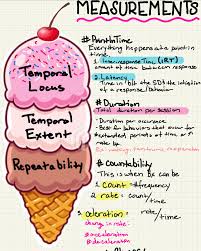 MEASUREMENTS
#PointInTime
Everything happens at a point in
time.
1. Interresponse Time (IRT)
amount of time between response
2. Latency
Time in b/t the SD & the initiation
of a response/behavior
#Duration
Total duration per session
- Duration per occurrence
- Best for behaviors that occur for
periods of time
rate
Ex:
#Countability
This is when Bx can be
1. Count = #frequency
2. rate = count/
time
3. Celeration =
change in rate
rate/time
@acceleration
@deceleration
Temporal
Locus
Temporal
Extent
Repeatability